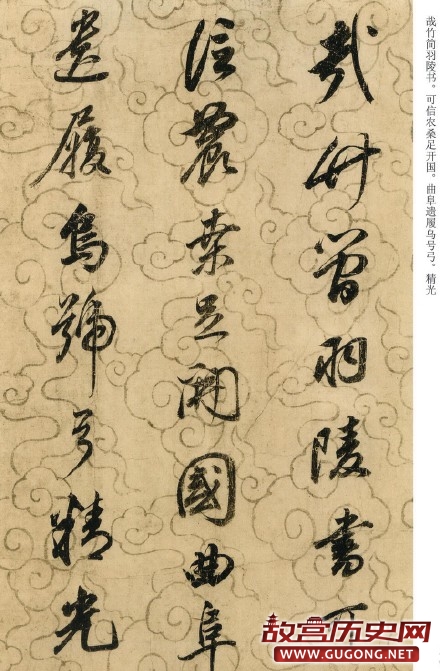 哉竹简羽陵书。可信农桑足开国。曲阜遗履乌号弓。精光
哉竹简羽陵書可
信農桒足開國曲阜
遺履烏號弓精光
故宫历史网
WWW.GUGONG.NET